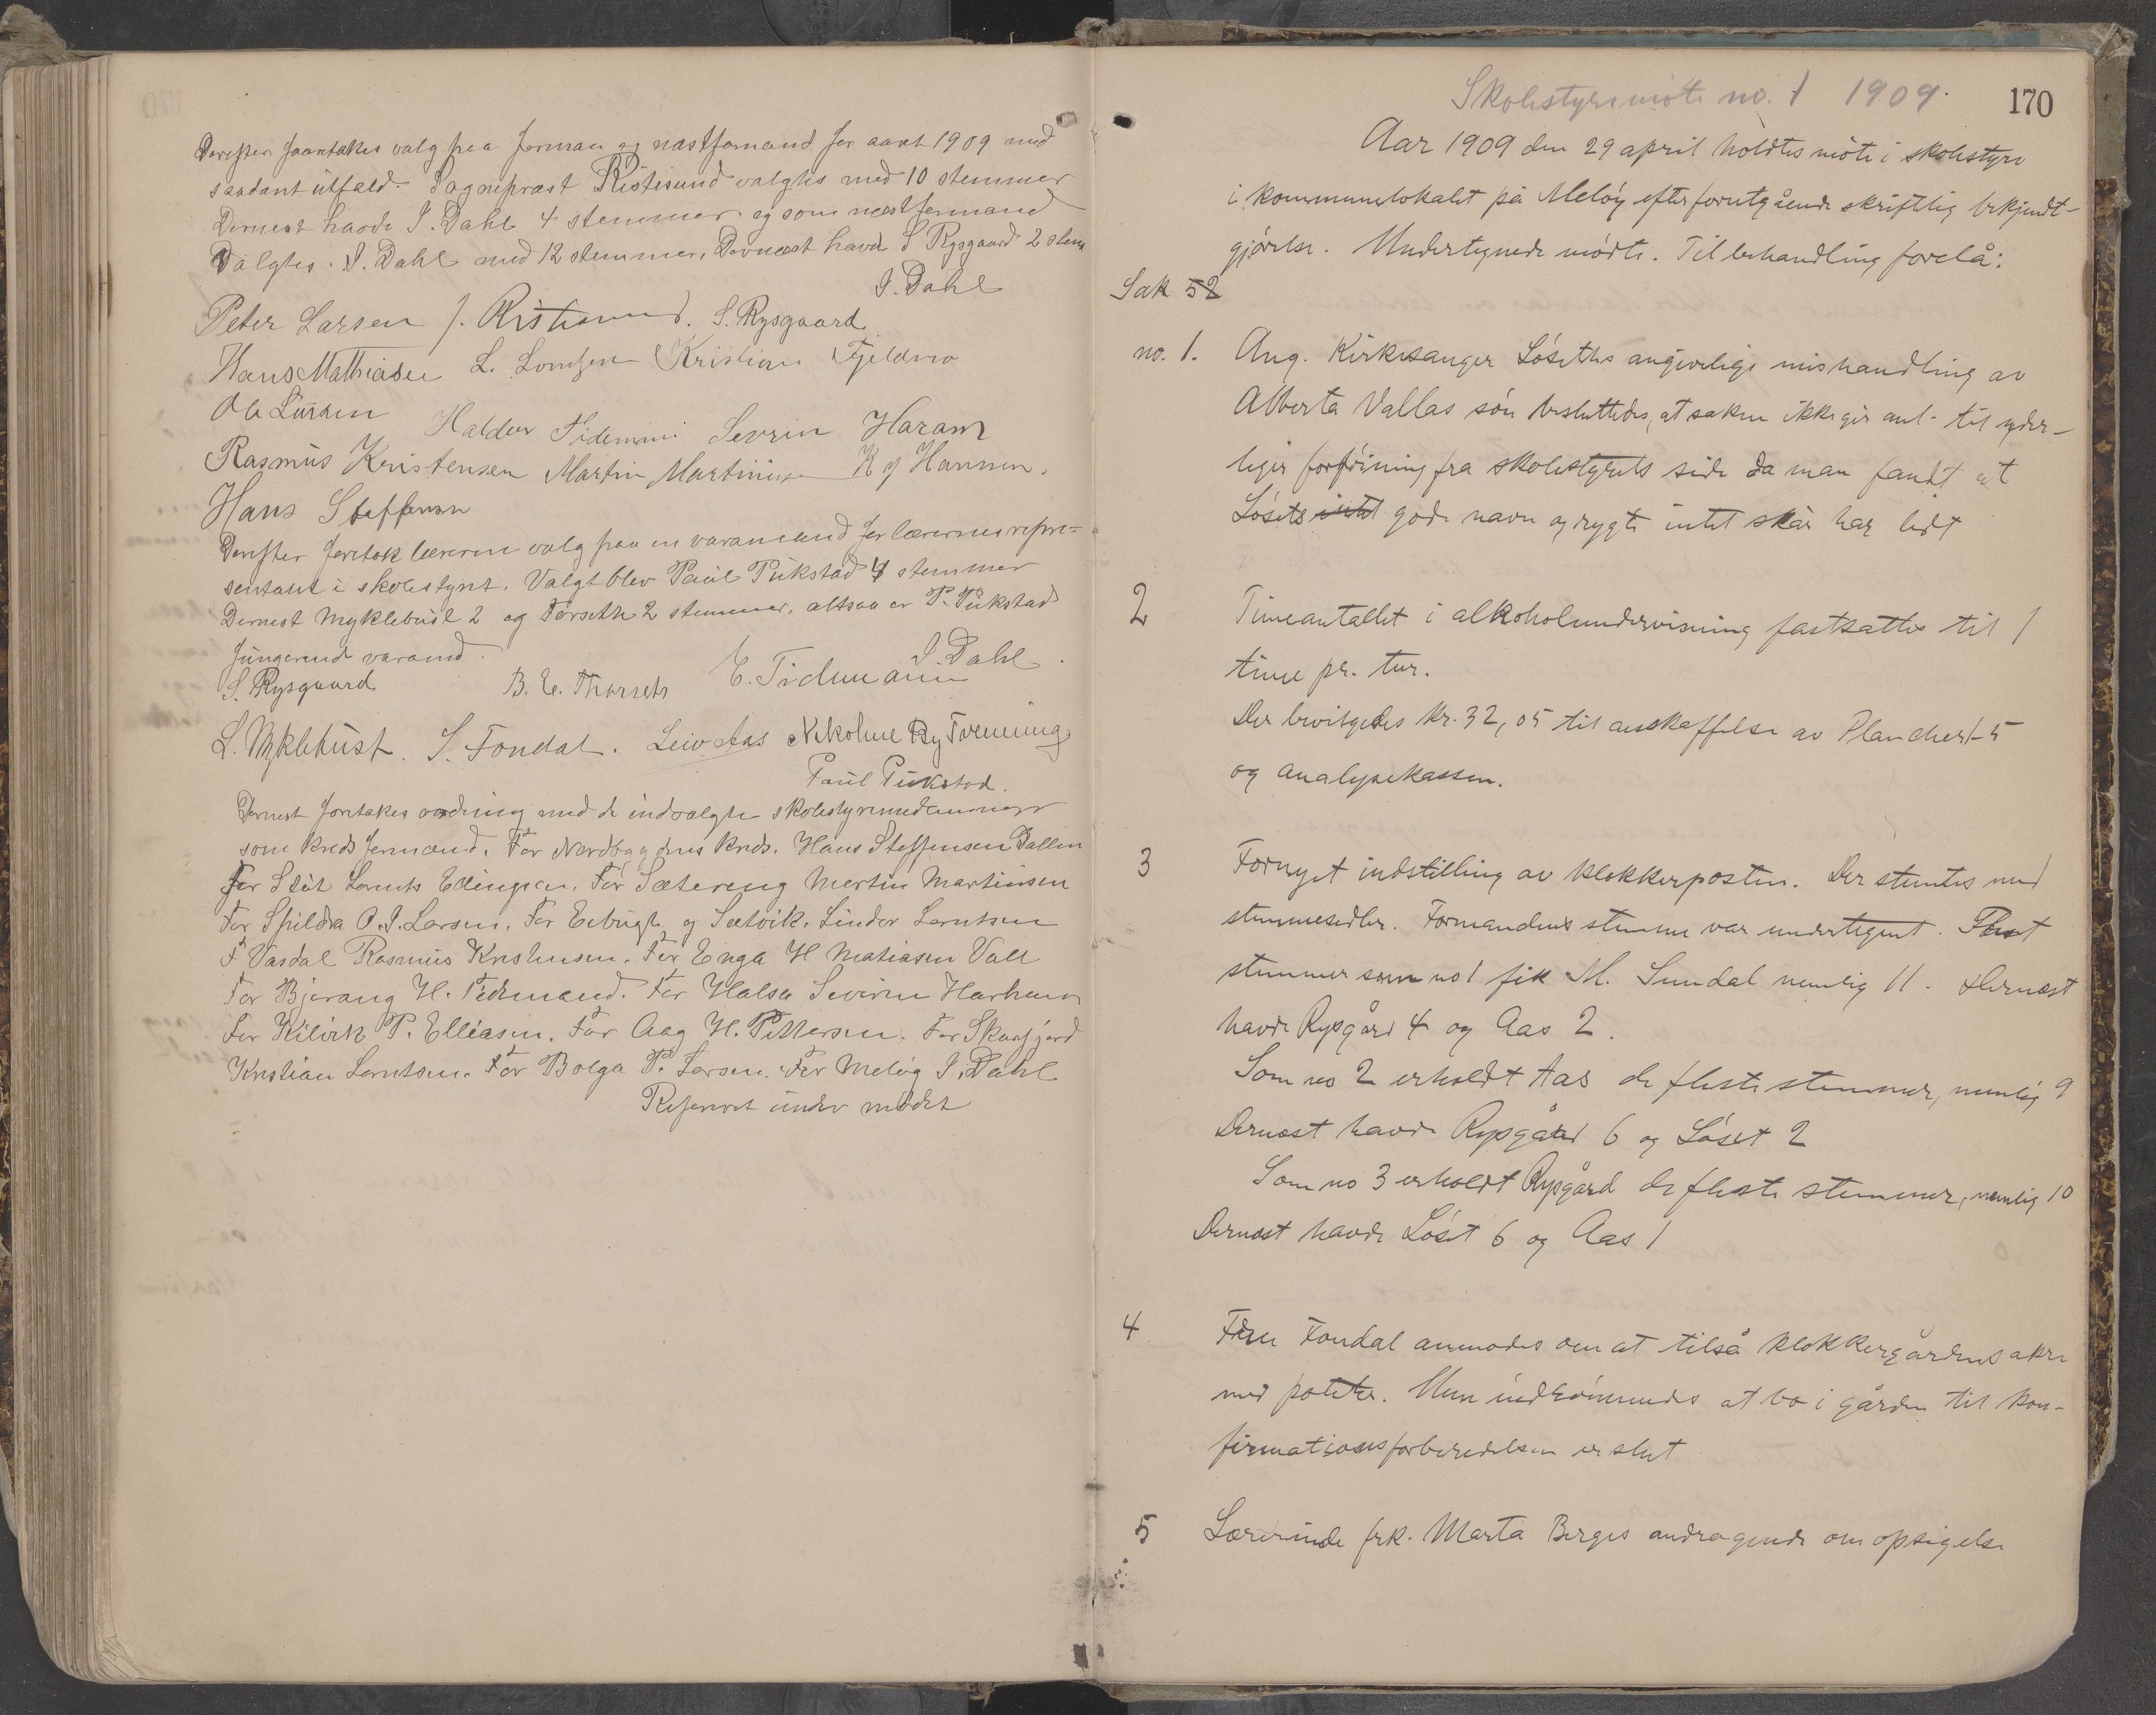 Derefter foantakes valg paa forman og næstformand for aaret 1909 med
saadant utfald. Sognepræst Ristesund valgtes med 10 stemmer
Dernest havde I. Dahl 4 stemmer og som næstformand
Valgtes. I. Dahl med 12 stemmer, Dernæst havd S Rysgaard 2 stem
I. Dahl
Peter Larsen J. Ristesund. S. Rysgaard
Hans Mathiasen L. Lorntsen Kristian Fjeldmo
Ole Larsen
Haldor Tidemann Sevrin Haram
Rasmus Kristensen Martin Martinusen Hansen.
Hans Steffensen
Derefter foretok lærerne valg paa en varamand for lærernes repre=
sentant i skolestyret. Valgt blev Paul Pukstad 4 stemmer
Dernest Myklebust 2 og Torseth 2 stemmer, altsaa er P. Pukstad
fungerend varamd.
I. Dahl.
S. Rysgaard B. E. Thorseth E. Tidemann
L. Myklebust. S. Fondal. Leiv Aas Nikoline Ry Tverrvang
Paul Pukstad.
Dernest foretakes ordning med de indvalgte skolestyremedlemmer
som kreds formænd. For Nordbygdens kreds. Hans Steffensen Dallen
For Støt Lornts Edingsen. For Sætereng Martin Martinsen
For Spildra O. J. Larsen. For Eebugt og Sætvik. Lindor Lorntsen
F Vasdal Rasmus Kristensen. For Enga H Matiasen Vall
For Bjerang H. Tidemand. For Halsa Severin Harham
For Kilvik P. Elliasen. For Aag H. Pettersen. For Skarsfjord
Kristian Lorntsen. For Bolga P. Larsen. For Meløy I. Dahl
Referert under mødet
Skolestyremöte no. 1 1909.
170
Aar 1909 den 29 april holdtes möte i skolestyre
i kommunelokalet på Meløy efter forutgående skriftlig bekjendt-
gjörelse. Undertegnede mödte. Til behandling forelå:
Sak 52
no. 1. Ang. Kirkesanger Lösetths angivelige mishandling av
Alberta Vallas sön besluttedes, at saken ikke gir anl. til yder-
liger forföining fra skolestyrets side da man fandt at
Lösets intet gode navn og rygte intet skår har lidt
2 Timeantallet i alkoholundervisning fastsattes til 1
time pr. tur.
Der bevilgedes Kr. 32,05 til anskaffelse av Plancher 1-5
og analysekassen.
3 Fornyet indstilling av klokkerposten. Der stemtes med
stemmesedler. Formandens stemme var undertegnet. Flest
stemmer som no 1 fik M. Sundal nemlig 11. Dernæst
havde Rysgård 4 og Aas 2.
Som no 2 erholdt Aas de fleste stemmer, nemlig 9
Dernæst havde Rysgård 6 og Löset 2
Som no 3 erholdt Rysgård de fleste stemmer, nemlig 10
Dernæst havde Löset 6 og Aas 1
4 Frue Fondal anmodes om at tilså klokkergårdens akre
med poteter. Hun indrömmedes at bo i gården til kon-
firmationsforberedelsen er slut
5 Lærerinde frk. Marta Berges andragende om opsigelse